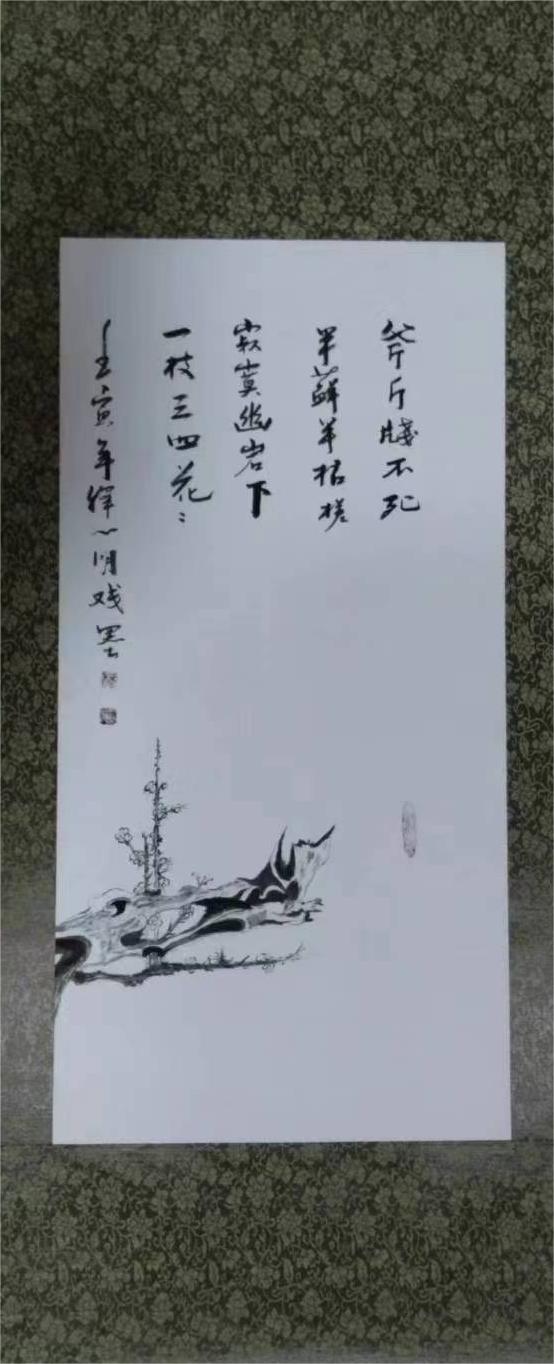 斧斤戕不死
半藓半枯槎
寂寞幽岩下
一枝三四花
壬寅年释心明戏墨